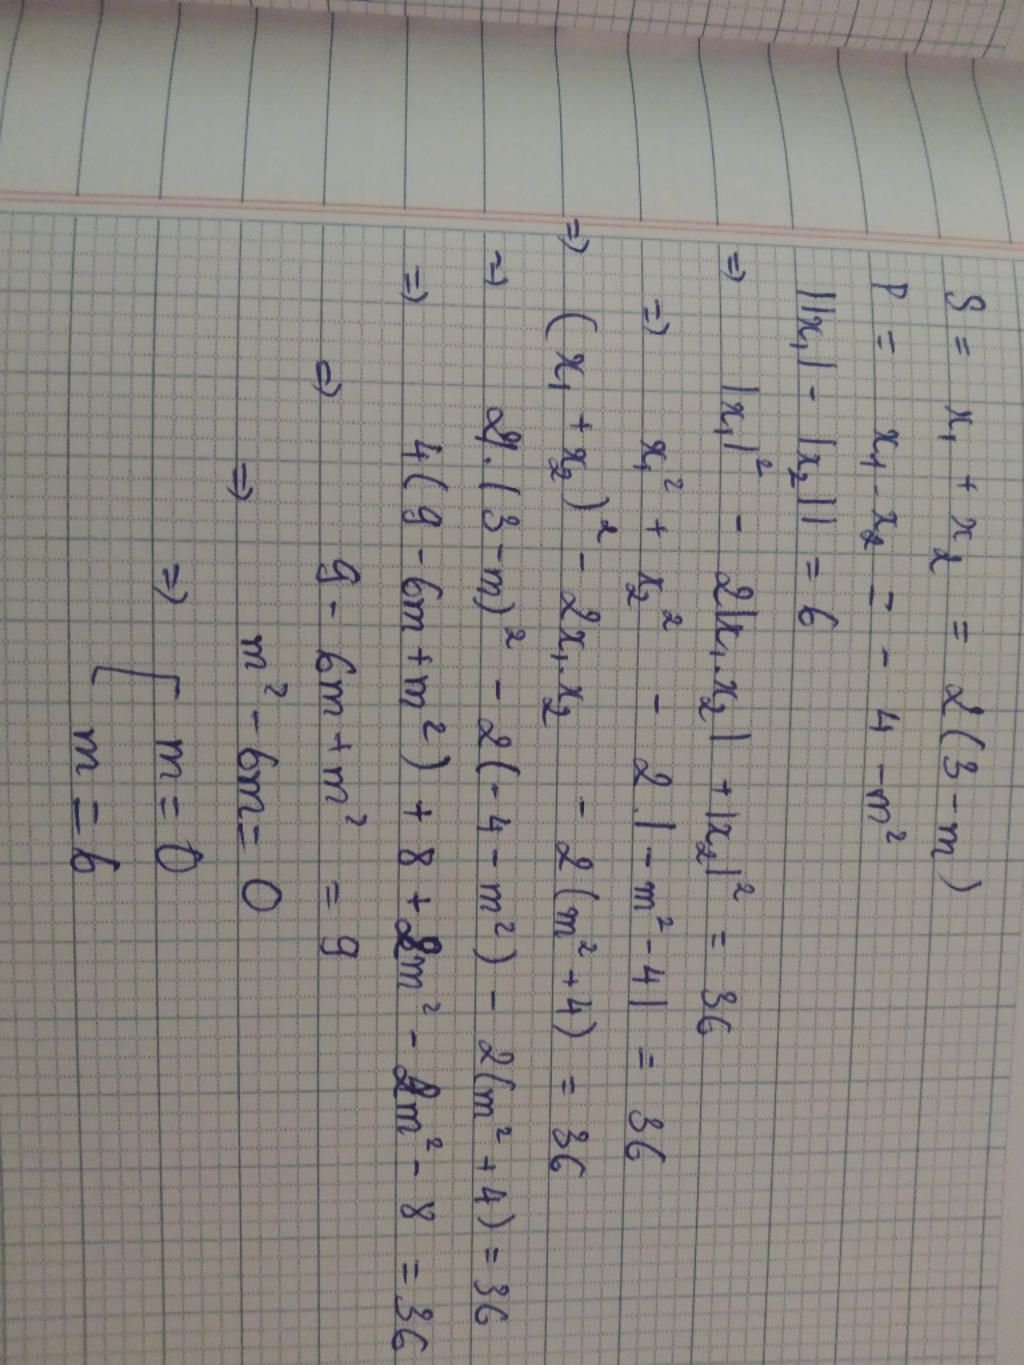 S = x₁ + x₂ = 2(3 - m)
P = x₁.x₂ = - 4 - m²
||x₁| - |x₂|| = 6
=> |x₁|² - 2|x₁.x₂| + |x₂|² = 36
=> x₁² + x₂² - 2.|-m² - 4| = 36
=> (x₁ + x₂)² - 2x₁.x₂ - 2(m² + 4) = 36
=> 4.(3 - m)² - 2(-4 - m²) - 2(m² + 4) = 36
=> 4(9 - 6m + m²) + 8 + 2m² - 2m² - 8 = 36
=> 9 - 6m + m² = 9
=> m² - 6m = 0
=> [ m = 0
m = 6